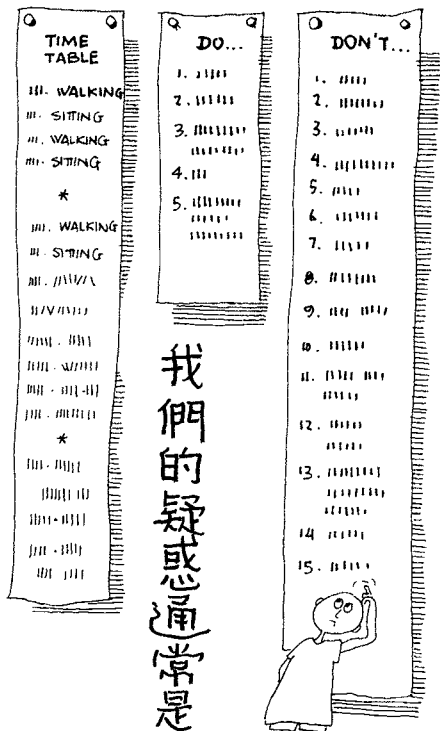 TIME
TABLE
WALKING
SITTING
WALKING
SITTING
*
WALKING
SITTING
*
DO...
1.
2.
3.
4.
5.
DON'T...
1.
2.
3.
4.
5.
6.
7.
8.
9.
10.
11.
12.
13.
14
15.
我們的疑惑通常是